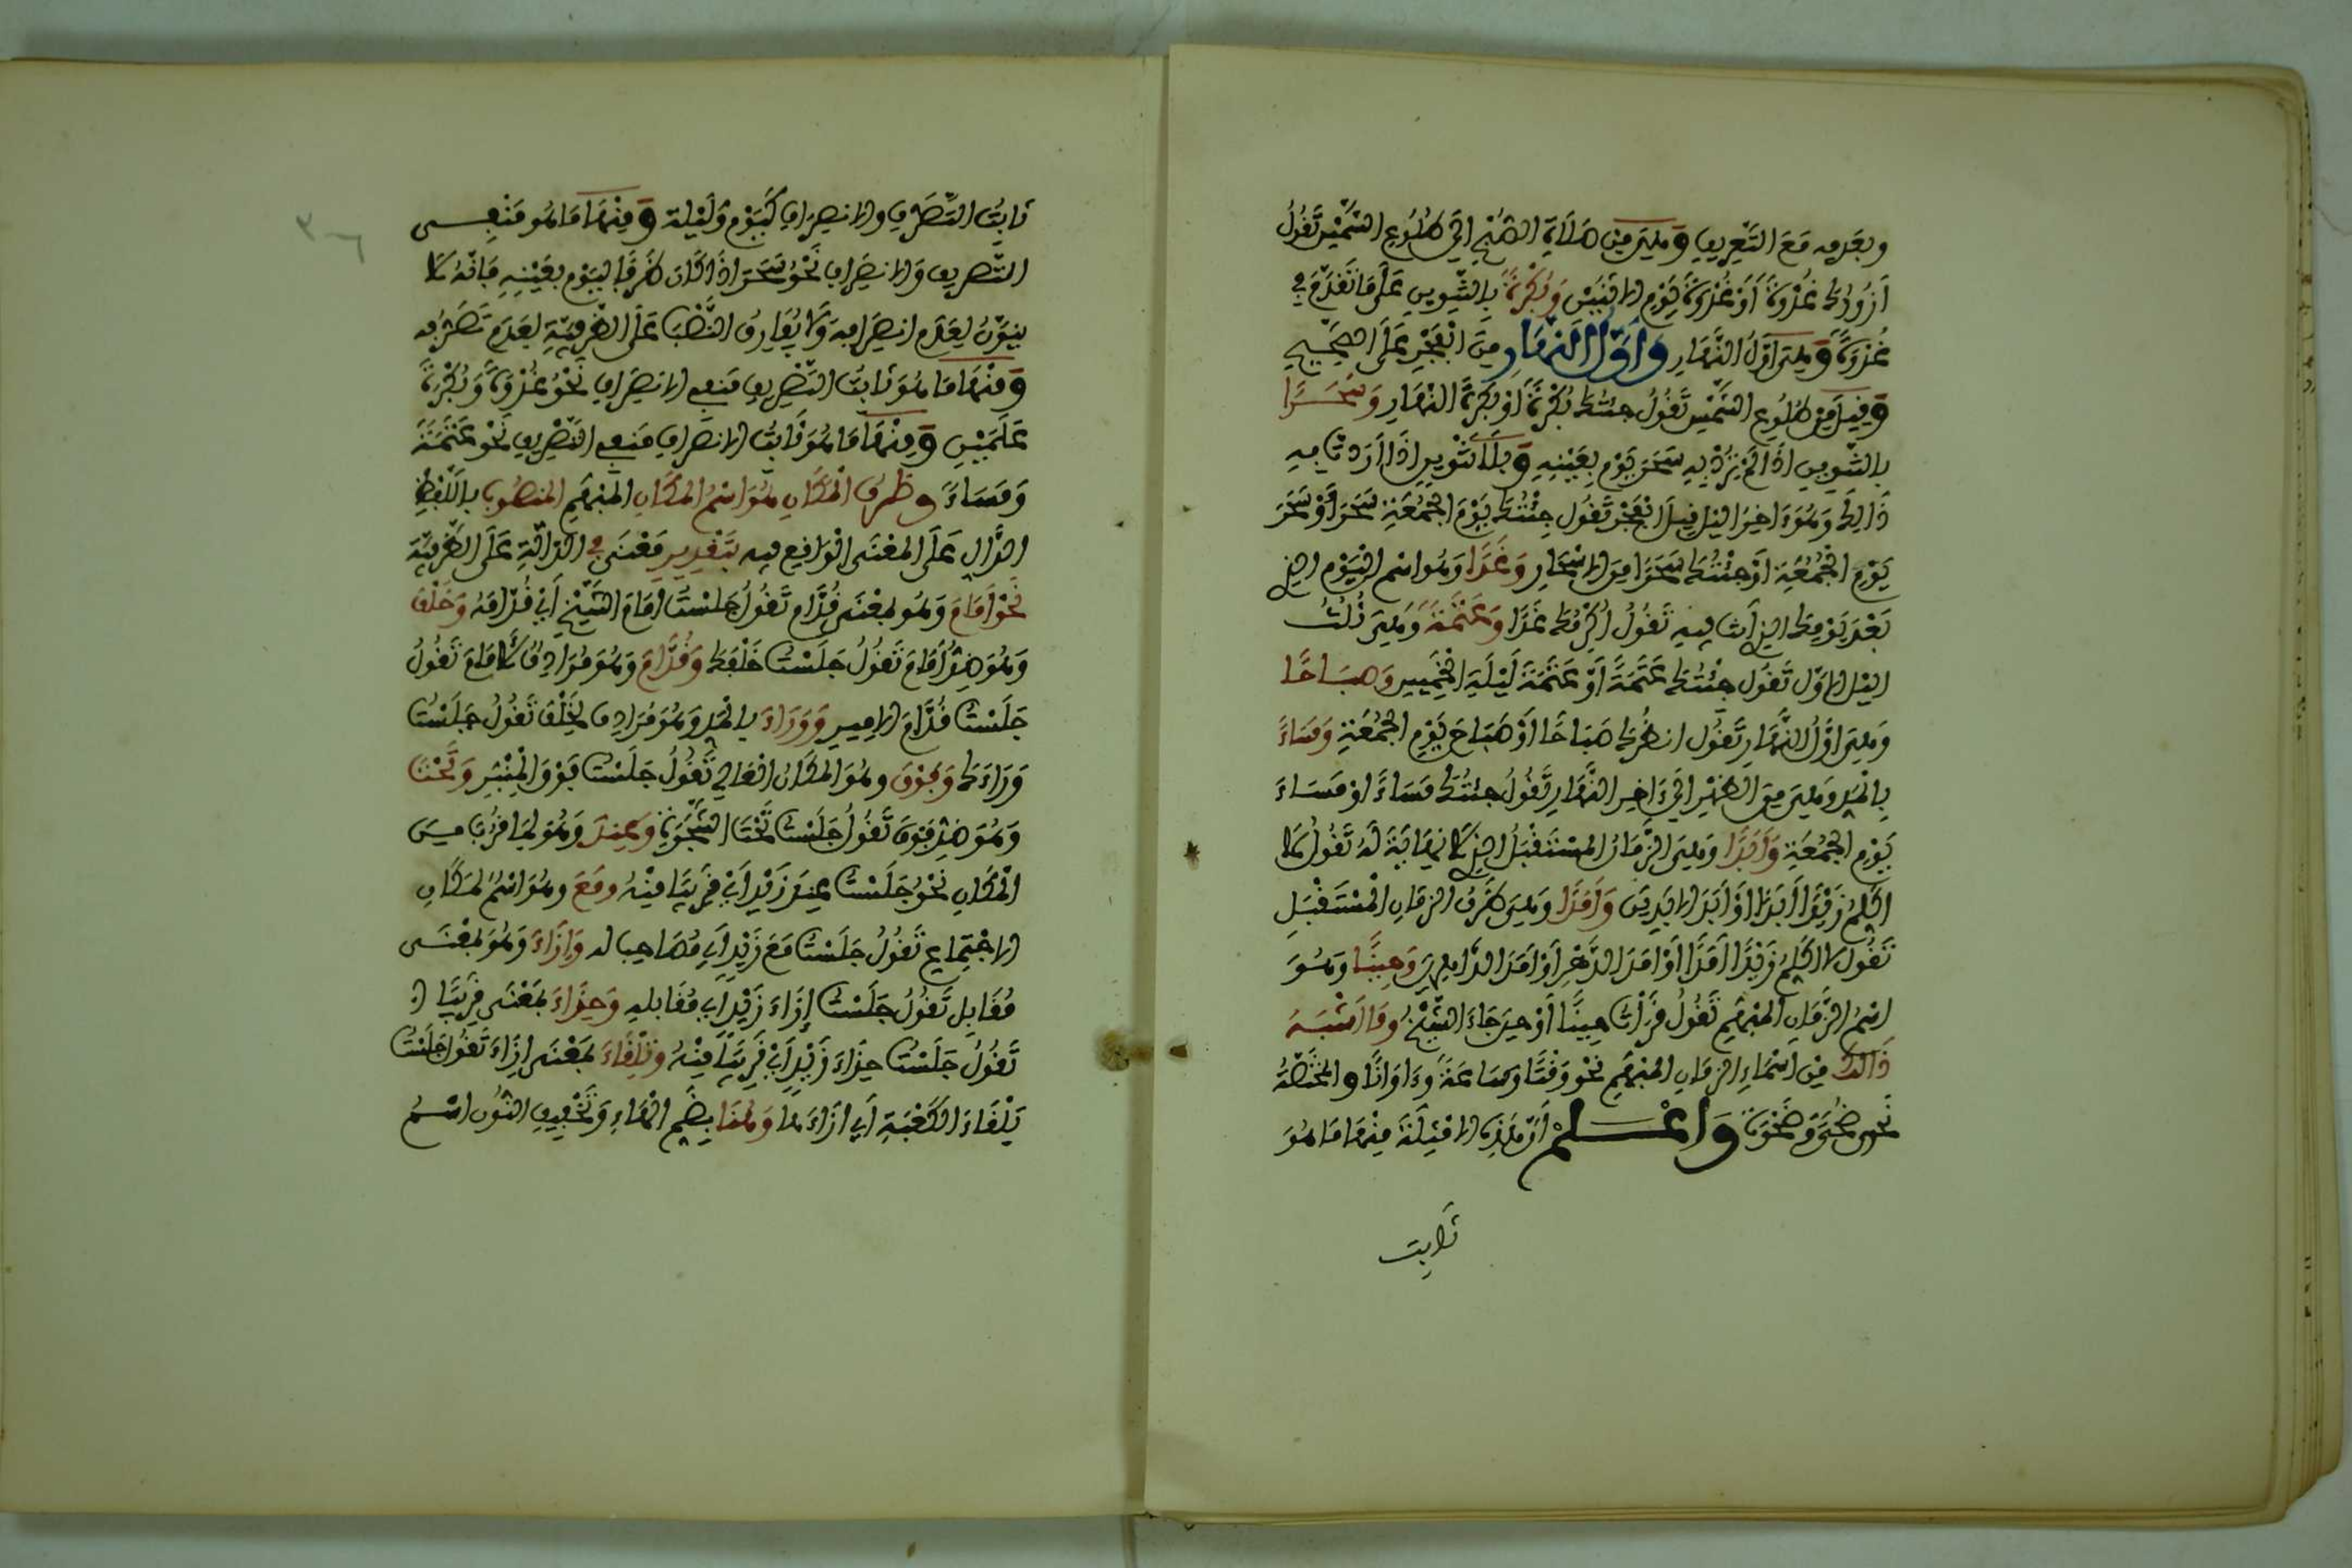 وبعدمه مع التعريف وهي من صلاة الصبح الى طلوع الشمس تقول
ازورك غدوة أو غدوة يوم الاثنين وبكرة بالتنوين على ما تقدم في
غدوة وهي اول النهار واول النهار من الفجر على الصحيح
وقيل من طلوع الشمس تقول جئتك بكرة أو بكرة النهار وسحرا
بالتنوين اذا لم ترد به سحر يوم بعينه وبلا تنوين اذا أردت به
ذالك وهو ءاخر اليل قبل الفجر تقول جئتك يوم الجمعة سحر أو سحر
يوم الجمعة أو جئتك سحرا من الاسحار وغدا وهو اسم اليوم الذي
بعد يومك الذي أنت فيه تقول أكرمك غدا وعتمة وهي ثلث
اليل الاول تقول جئتك عتمة أو عتمة ليلة الخميس وصباحا
وهي اول النهار تقول انظرك صباحا أو صباح يوم الجمعة ومساء
بالمد وهي من الظهر الى ءاخر النهار تقول جئتك مساء او مساء
يوم الجمعة وأبدا وهي الزمان المستقبل الذي لا نهاية له تقول لا
اكلم زيدا أبدا أو أبد الابدين وأمدا وهي ظرف الزمان المستقبل
تقول لا اكلم زيدا أمدا أو أمد الدهر أو أمد الداهرين وحينا وهو
اسم الزمان المبهم تقول قرأت حينا أو حين جاء الشيخ وما اشبه
ذالك من اسماء الزمان المبهم نحو وقتا وساعة وءاوانا والمختصة
نحو ضحى وضحوة واعلم أن هذه الامثلة منها ما هو
ثابت
ثابت التصرف والانصراف كيوم وليلة ومنها ما هو منفي
التصريف والانصراف نحو سحر اذا كان ظرفا ليوم بعينه فانه لا
ينون لعدم انصرافه ولا يفارق النصب على الظرفية لعدم تصرفه
ومنها ما هو ثابت التصريف منفي الانصراف نحو غدوة وبكرة
علمين ومنها ما هو ثابت الانصراف منفي التصريف نحو عتمة
ومساء وظرف المكان هو اسم المكان المبهم المنصوب باللفظ
الدال على المعنى الواقع فيه بتقدير معنى في الدالة على الظرفية
نحو أمام وهو بمعنى قدام تقول جلست امام الشيخ أي قدامه وخلف
وهو ضد أمام تقول جلست خلفك وقدام وهو مرادف لأمام تقول
جلست قدام الامير ووراء بالمد وهو مرادف لخلف تقول جلست
وراءك وفوق وهو المكان العالي تقول جلست فوق المنبر وتحت
وهو ضد فوق تقول جلست تحت الشجرة وعند وهو لما قرب من
المكان نحو جلست عند زيد أي قريبا منه ومع وهو اسم لمكان
الاجتماع تقول جلست مع زيد أي مصاحبا له وإزاء وهو بمعنى
مقابل تقول جلست إزاء زيد أي مقابله وحذاء بمعنى قريبا
تقول جلست حذاء زيد أي قريبا منه وتلقاء بمعنى إزاء تقول جلست
تلقاء الكعبة أي ازاءها وهنا بضم الهاء وتخفيف النون اسم